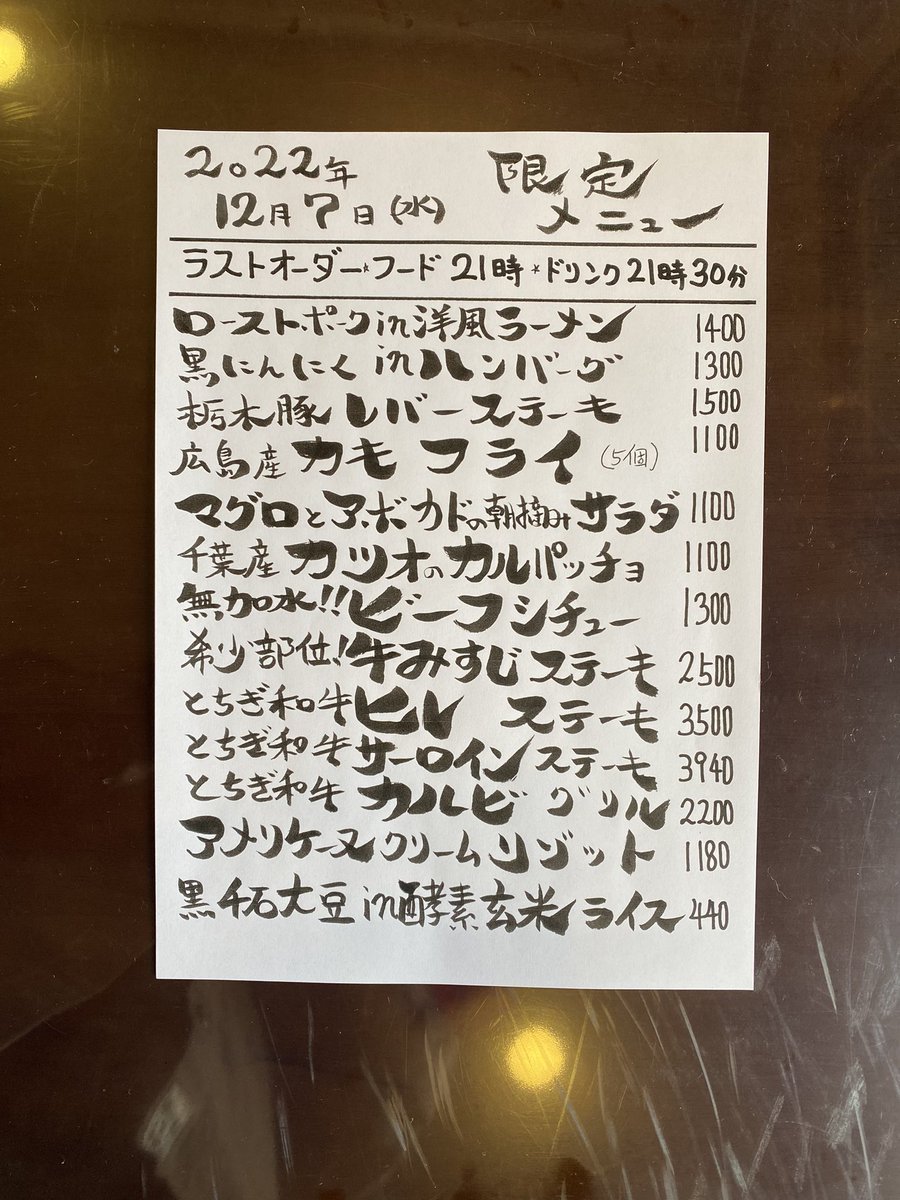 2022年 限定
12月7日(水) メニュー
ラストオーダー*フード 21時 *ドリンク21時30分
ローストポークin洋風ラーメン 1400
黒にんにく inハンバーグ 1300
栃木豚 レバーステーキ 1500
広島産 カキフライ (5個) 1100
マグロとアボカドの朝摘みサラダ 1100
千葉産 カツオのカルパッチョ 1100
無加水!! ビーフシチュー 1300
希少部位! 牛みすじステーキ 2500
とちぎ和牛 ヒレ ステーキ 3500
とちぎ和牛 サーロインステーキ 3940
とちぎ和牛 カルビ グリル 2200
アメリケーヌクリームリゾット 1180
黒千石大豆in酵素玄米ライス 440